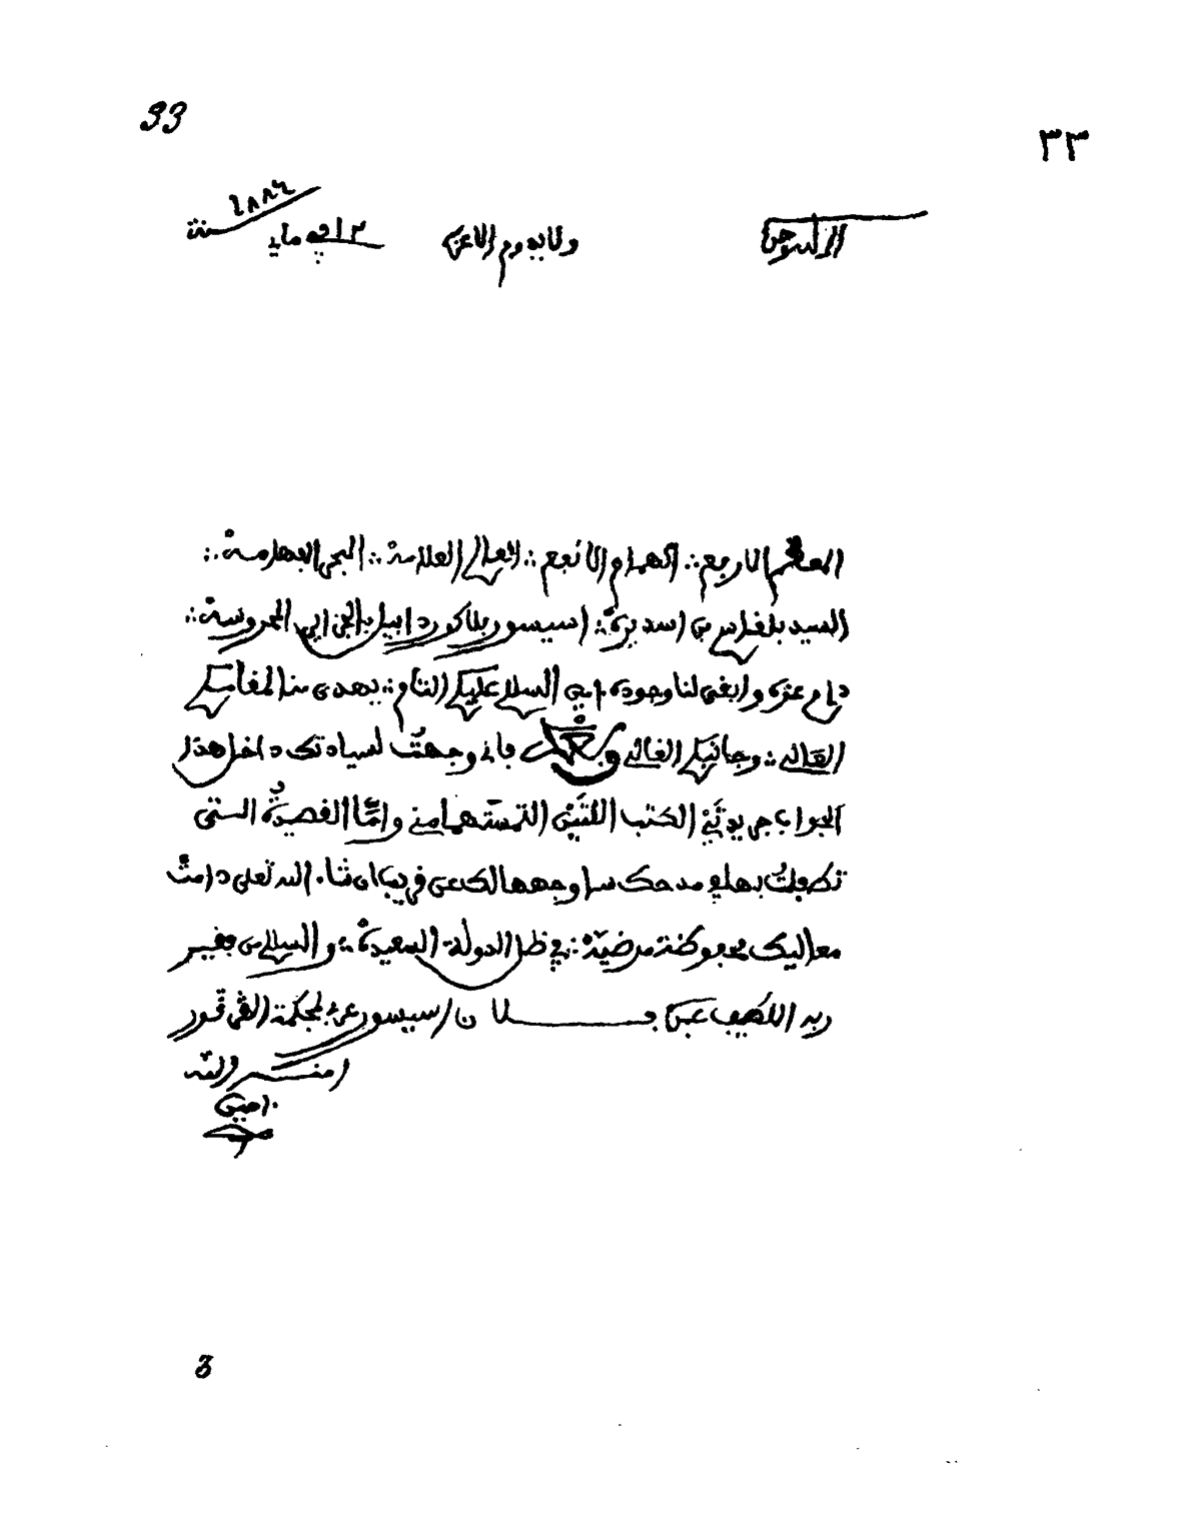 33
٣٣
الحمد لله وحده
ولا يدوم إلا عزه
١٢ في مايه سنة ١٨٨٤
المعظم الارفع الهمام الانفع العالم العلامة البحر الفهامة
السيد بلقاسم بن اسديرة ابرفيسور بالجزاير المحروسة
دام عزه وابقى لنا وجوده امين السلام عليكم التام يهدى منا لمقامكم
العالي وجانبكم الغالي وبعد فاني وجهت لسيادتك داخل هذا
الجواب جريدتي الكتب اللتين التمستهما مني واما القصيدة التي
تطفلت بها في مدحك ساوجهها لك عن قريب ان شاء الله تعلى دامت
معاليك محفوظة مرضية في ظل الدولة السعيدة والسلام من فقير
ربه اللطيف عبده فلان
امنه الله
امين
3